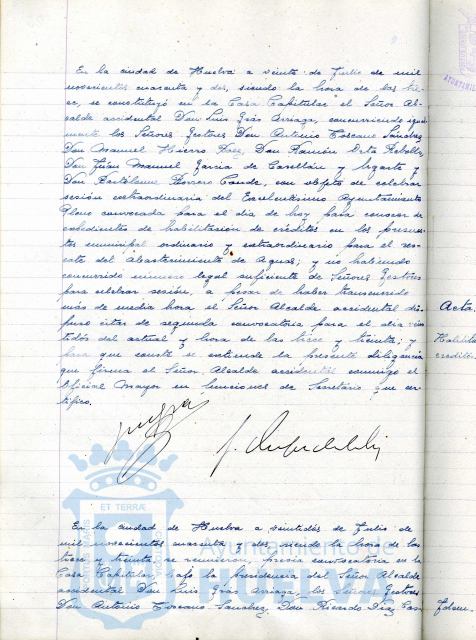 En la ciudad de Huelva a veinte de Julio de mil
novecientos cuarenta y dos, siendo la hora de las tre-
ce, se constituyó en la Casa Capitular el Señor Al-
calde accidental Don Luis Gras Arriaga, concurriendo igual-
mente los Señores Gestores Don Antonio Toscano Sanchez
Don Manuel Hierro Don Ramón
Don Juan Manuel Garcia de Castellán y Ugarte y
Don Bartolomé Borrero Conde, con objeto de celebrar
sesión extraordinaria del Excelentísimo Ayuntamiento
Pleno convocada para el dia de hoy para conocer de
expedientes de habilitación de créditos en los presupues-
tos municipal ordinario y extraordinario para el res-
cate del Abastecimiento de Aguas; y no habiendo
concurrido número legal suficiente de Señores Gestores
para celebrar sesión, a pesar de haber transcurrido
más de media hora el Señor Alcalde accidental dis-
puso citar de segunda convocatoria para el dia vein-
tidós del actual y hora de las trece y treinta; y
para que conste se extiende la presente diligencia
que firma el Señor Alcalde accidental conmigo el
Oficial Mayor en funciones de Secretario que cer-
tifico.
Acta.
Habilita
creditos
En la ciudad de Huelva a veintidós de Julio de
mil novecientos cuarenta y dos siendo la hora de las
trece y treinta, se reunieron previa convocatoria en la
Casa Capitular bajo la Presidencia del Señor Alcalde
accidental Don Luis Gras Arriaga, los Señores Gestores
Don Antonio Toscano Sanchez, Don Ricardo Diaz
Idem.
ET TERRÆ
Ayuntamiento de
HUELVA